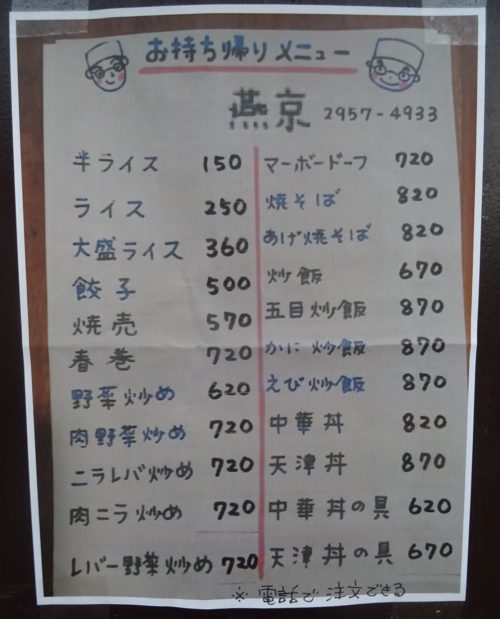 お持ち帰りメニュー
燕京 2957-4933
半ライス 150
ライス 250
大盛ライス 360
餃子 500
焼売 570
春巻 720
野菜炒め 620
肉野菜炒め 720
ニラレバ炒め 720
肉ニラ炒め 720
レバー野菜炒め 720
マーボードーフ 720
焼そば 820
あげ焼そば 820
炒飯 670
五目炒飯 870
かに炒飯 870
えび炒飯 870
中華丼 820
天津丼 870
中華丼の具 620
天津丼の具 670
※電話で注文できる